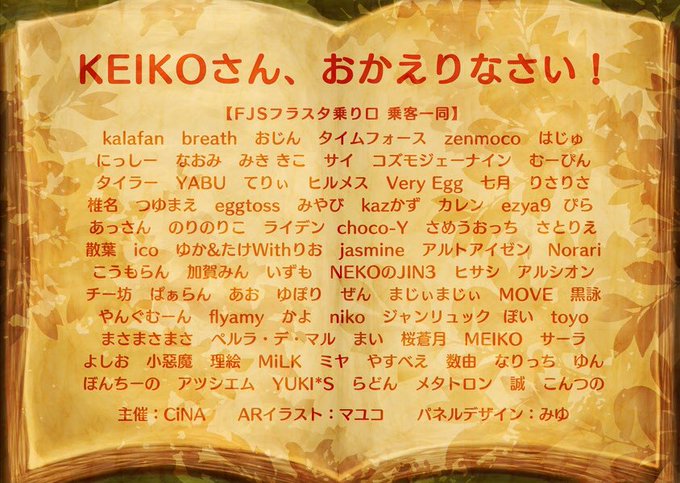 KEIKOさん、おかえりなさい！
【FJSフラスタ乗り口 乗客一同】
kalafan breath おじん タイムフォース zenmoco はじゅ
にっしー なおみ みき きこ サイ コズモジェーナイン むーぴん
タイラー YABU てりぃ ヒルメス Very Egg 七月 りさりさ
椎名 つゆまえ eggtoss みやび kazかず カレン ezya9 ぴら
あっさん のりのりこ ライデン choco-Y さめうおっち さとりえ
散葉 ico ゆか&たけWithりお jasmine アルトアイゼン Norari
こうもらん 加賀みん いずも NEKOのJIN3 ヒサシ アルシオン
チー坊 ぱぁらん あお ゆぽり ぜん まじぃまじぃ MOVE 黒詠
やんぐむーん flyamy かよ niko ジャンリュック ぽい toyo
まさまさまさ ペルラ・デ・マル まい 桜蒼月 MEIKO サーラ
よしお 小惡魔 理絵 MiLK ミヤ やすべえ 数由 なりっち ゆん
ぽんちーの アツシエム YUKI*S らどん メタトロン 誠 こんつの
主催：CiNA ARイラスト：マユコ パネルデザイン：みゆ